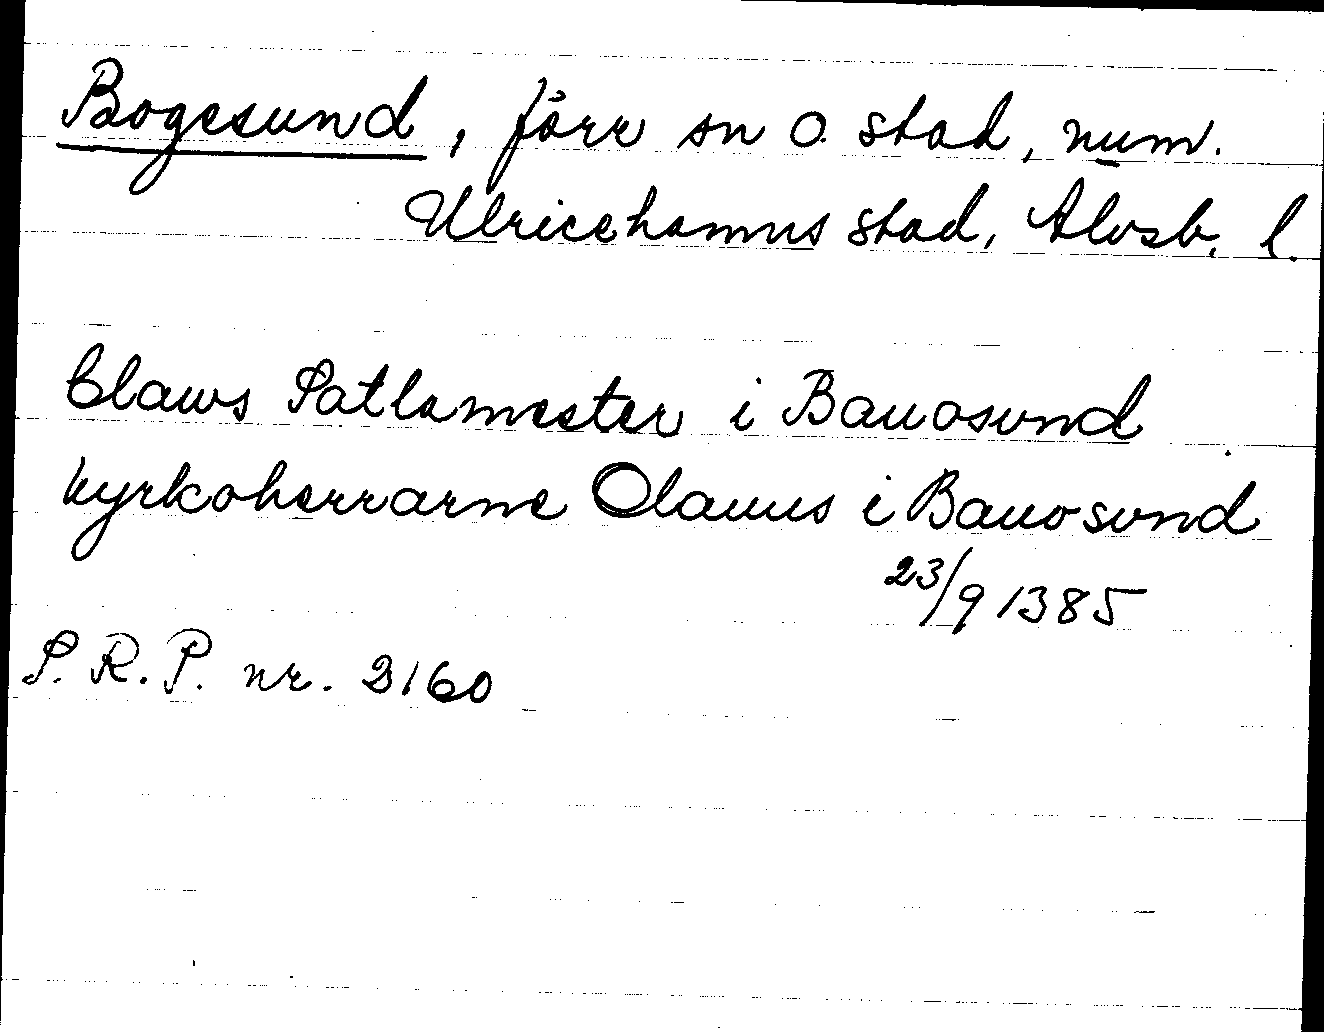 Bogesund, förr sn o. stad, num.
Ulricehamns stad, Älvsb. l.
Claws Satlamester i Bauosund
kyrkoherrarne Olauus i Bauosund
23/9 1385
S. R. P. nr. 2160